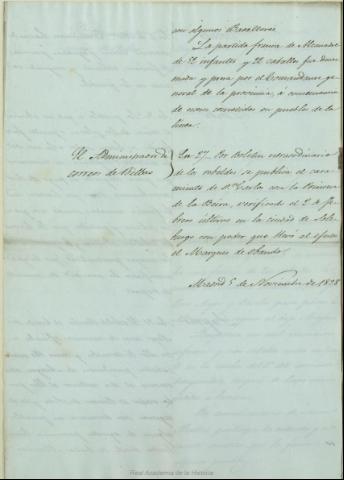 con algunos Caballeros.
La partida franca de Alcanadre
de infantes y 22 caballos fue desar
mada y presa por el Comandante ge-
neral de la provincia, á consecuencia
de escesos cometidos en pueblos de la
linea.
El Administrador de
correos de Bilbao
En 27. Por Boletin extraordinario
de los rebeldes se publica el casa-
miento de D. Carlos con la Princesa
de la Beira, verificado el 2 de fe-
brero último en la ciudad de Salz-
burgo con poder que llevó al efecto
el Marques de Obando.
Madrid 5 de Noviembre de 1838
Real Academia de la Historia